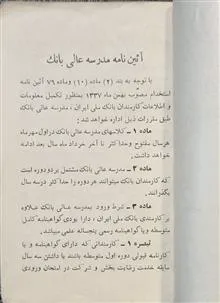 آئین نامه مدرسه عالی بانك
با توجه به بند (۲) ماده (۱۰) وماده ۷۹ آئین نامه
استخدام مصوب بهمن ماه ۱۳۳۷ بمنظور تکمیل معلومات
و اطلاعات کارمندان بانك ملی ایران ، مدرسه عالی بانك
طبق مقررات ذیل اداره خواهد شد :
ماده ۱ - کلاسهای مدرسه عالی بانك در اول مهر ماه
هر سال مفتوح و حدا کثر تا آخر خرداد ماه سال بعد ادامه
خواهد داشت .
ماده ۲ - مدرسه عالی بانك مشتمل بر دو دوره است
که کارمندان بانك میتوانند هر دوره را حدا کثر در سه سال
بگذرانند .
ماده ۳ - شرط ورود بمدرسه عالی بانك علاوه
بر کارمندی بانك ملی ایران ، دارا بودن گواهینامه کامل
متوسطه و یا گواهینامه رسمی پنجساله علمی میباشد .
تبصره ۱ - کارمندانی که دارای گواهینامه و یا
کارنامه قبولی دوره اول متوسطه باشند با داشتن سه سال
سابقه خدمت رضایت بخش و شرکت در امتحان ورودی